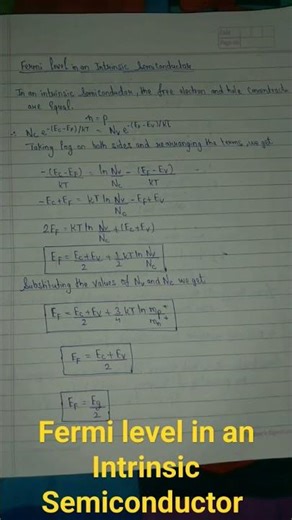 Fermi level in an Intrinsic Semiconductor
In an intrinsic semiconductor, the free electron and hole concentration
are equal.
n = p
∴ Nc e^-(Ec-EF)/KT = Nv e^-(EF-Ev)/KT
Taking log on both sides and rearranging the terms, we get
-(Ec-EF)/KT = ln Nv/Nc - (EF-Ev)/KT
-Ec+EF = KT ln Nv/Nc - EF+Ev
2EF = KT ln Nv/Nc + (Ec+Ev)
EF = Ec+Ev/2 + 1/2 KT ln Nv/Nc
Substituting the values of Nv and Nc we get
EF = Ec+Ev/2 + 3/4 KT ln mp*/mn*
EF = Ec+Ev/2
EF = Eg/2
Fermi level in an
Intrinsic
Semiconductor